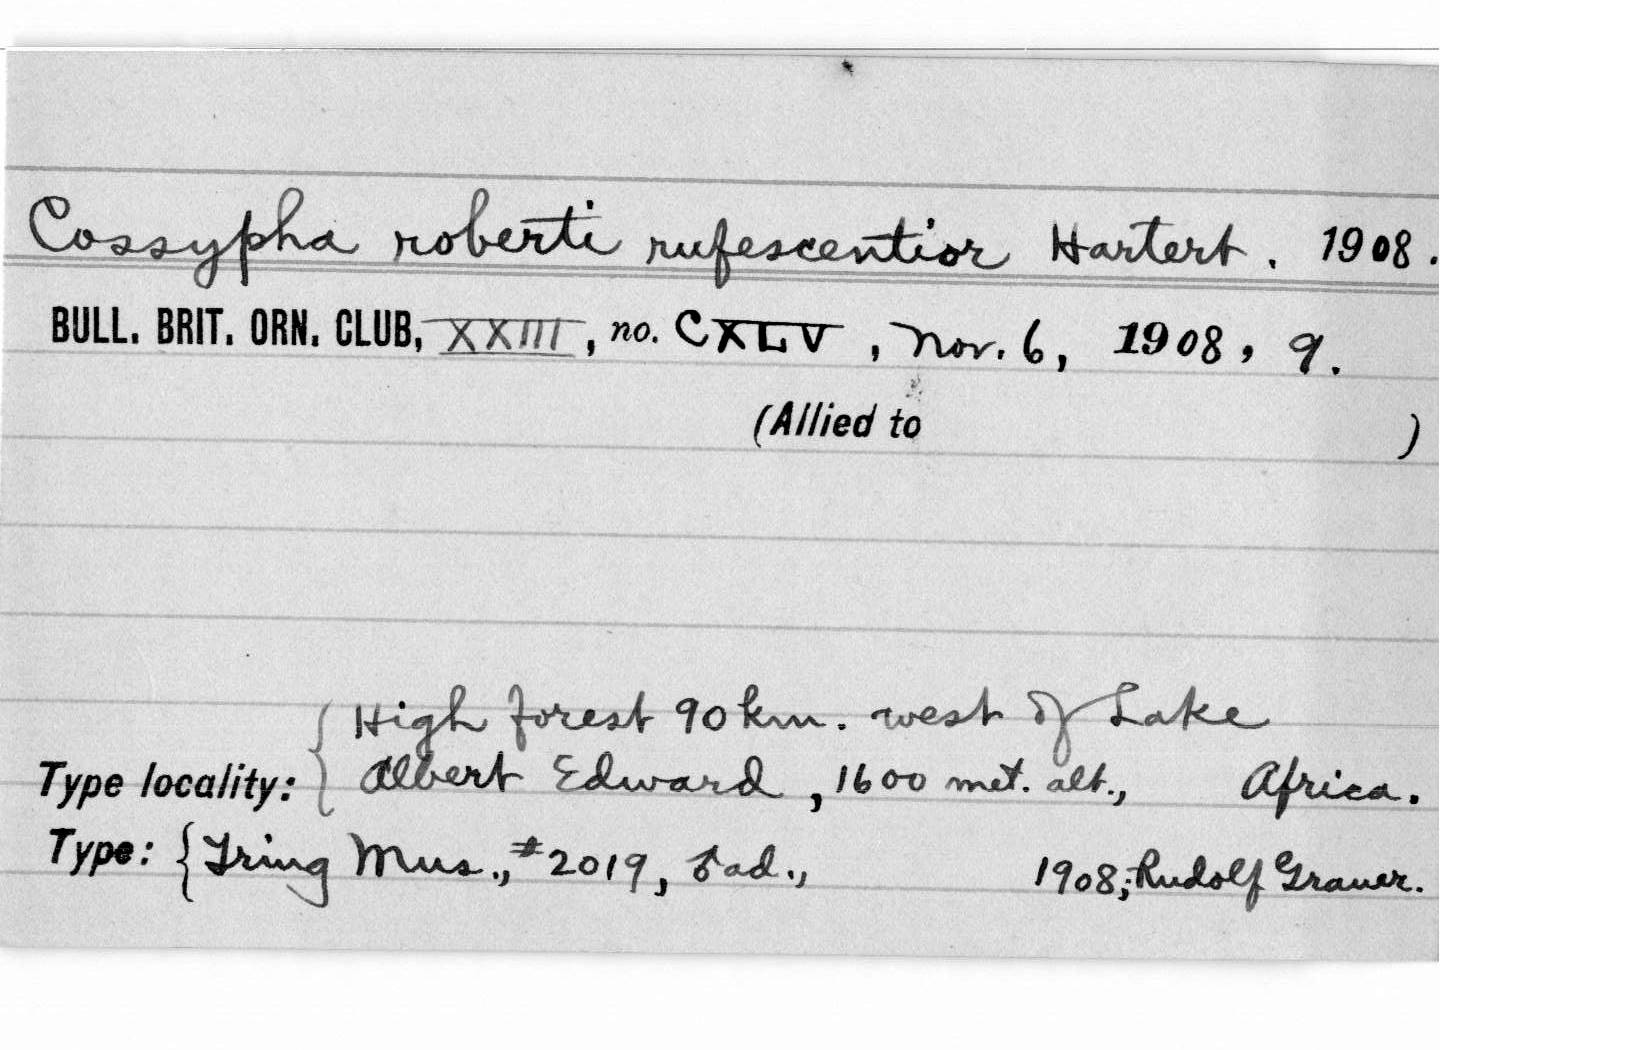 Cossypha roberti rufescentior Hartert. 1908.
BULL. BRIT. ORN. CLUB, XXIII, no. CXLV, Nov. 6, 1908, 9.
(Allied to )
High forest 90 km. west of Lake
Type locality: { Albert Edward, 1600 met. alt., Africa.
Type: { Tring Mus., #2019, ♂ ad., 1908; Rudolf Grauer.